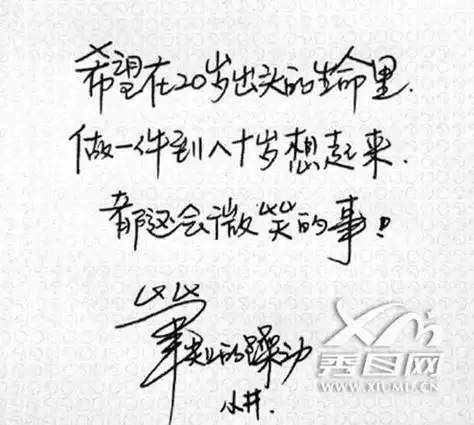 希望在20岁出头的生命里.
做一件到八十岁想起来.
都还会微笑的事!
的躁动
小井.
秀目网
WWW.XIUMU.CN